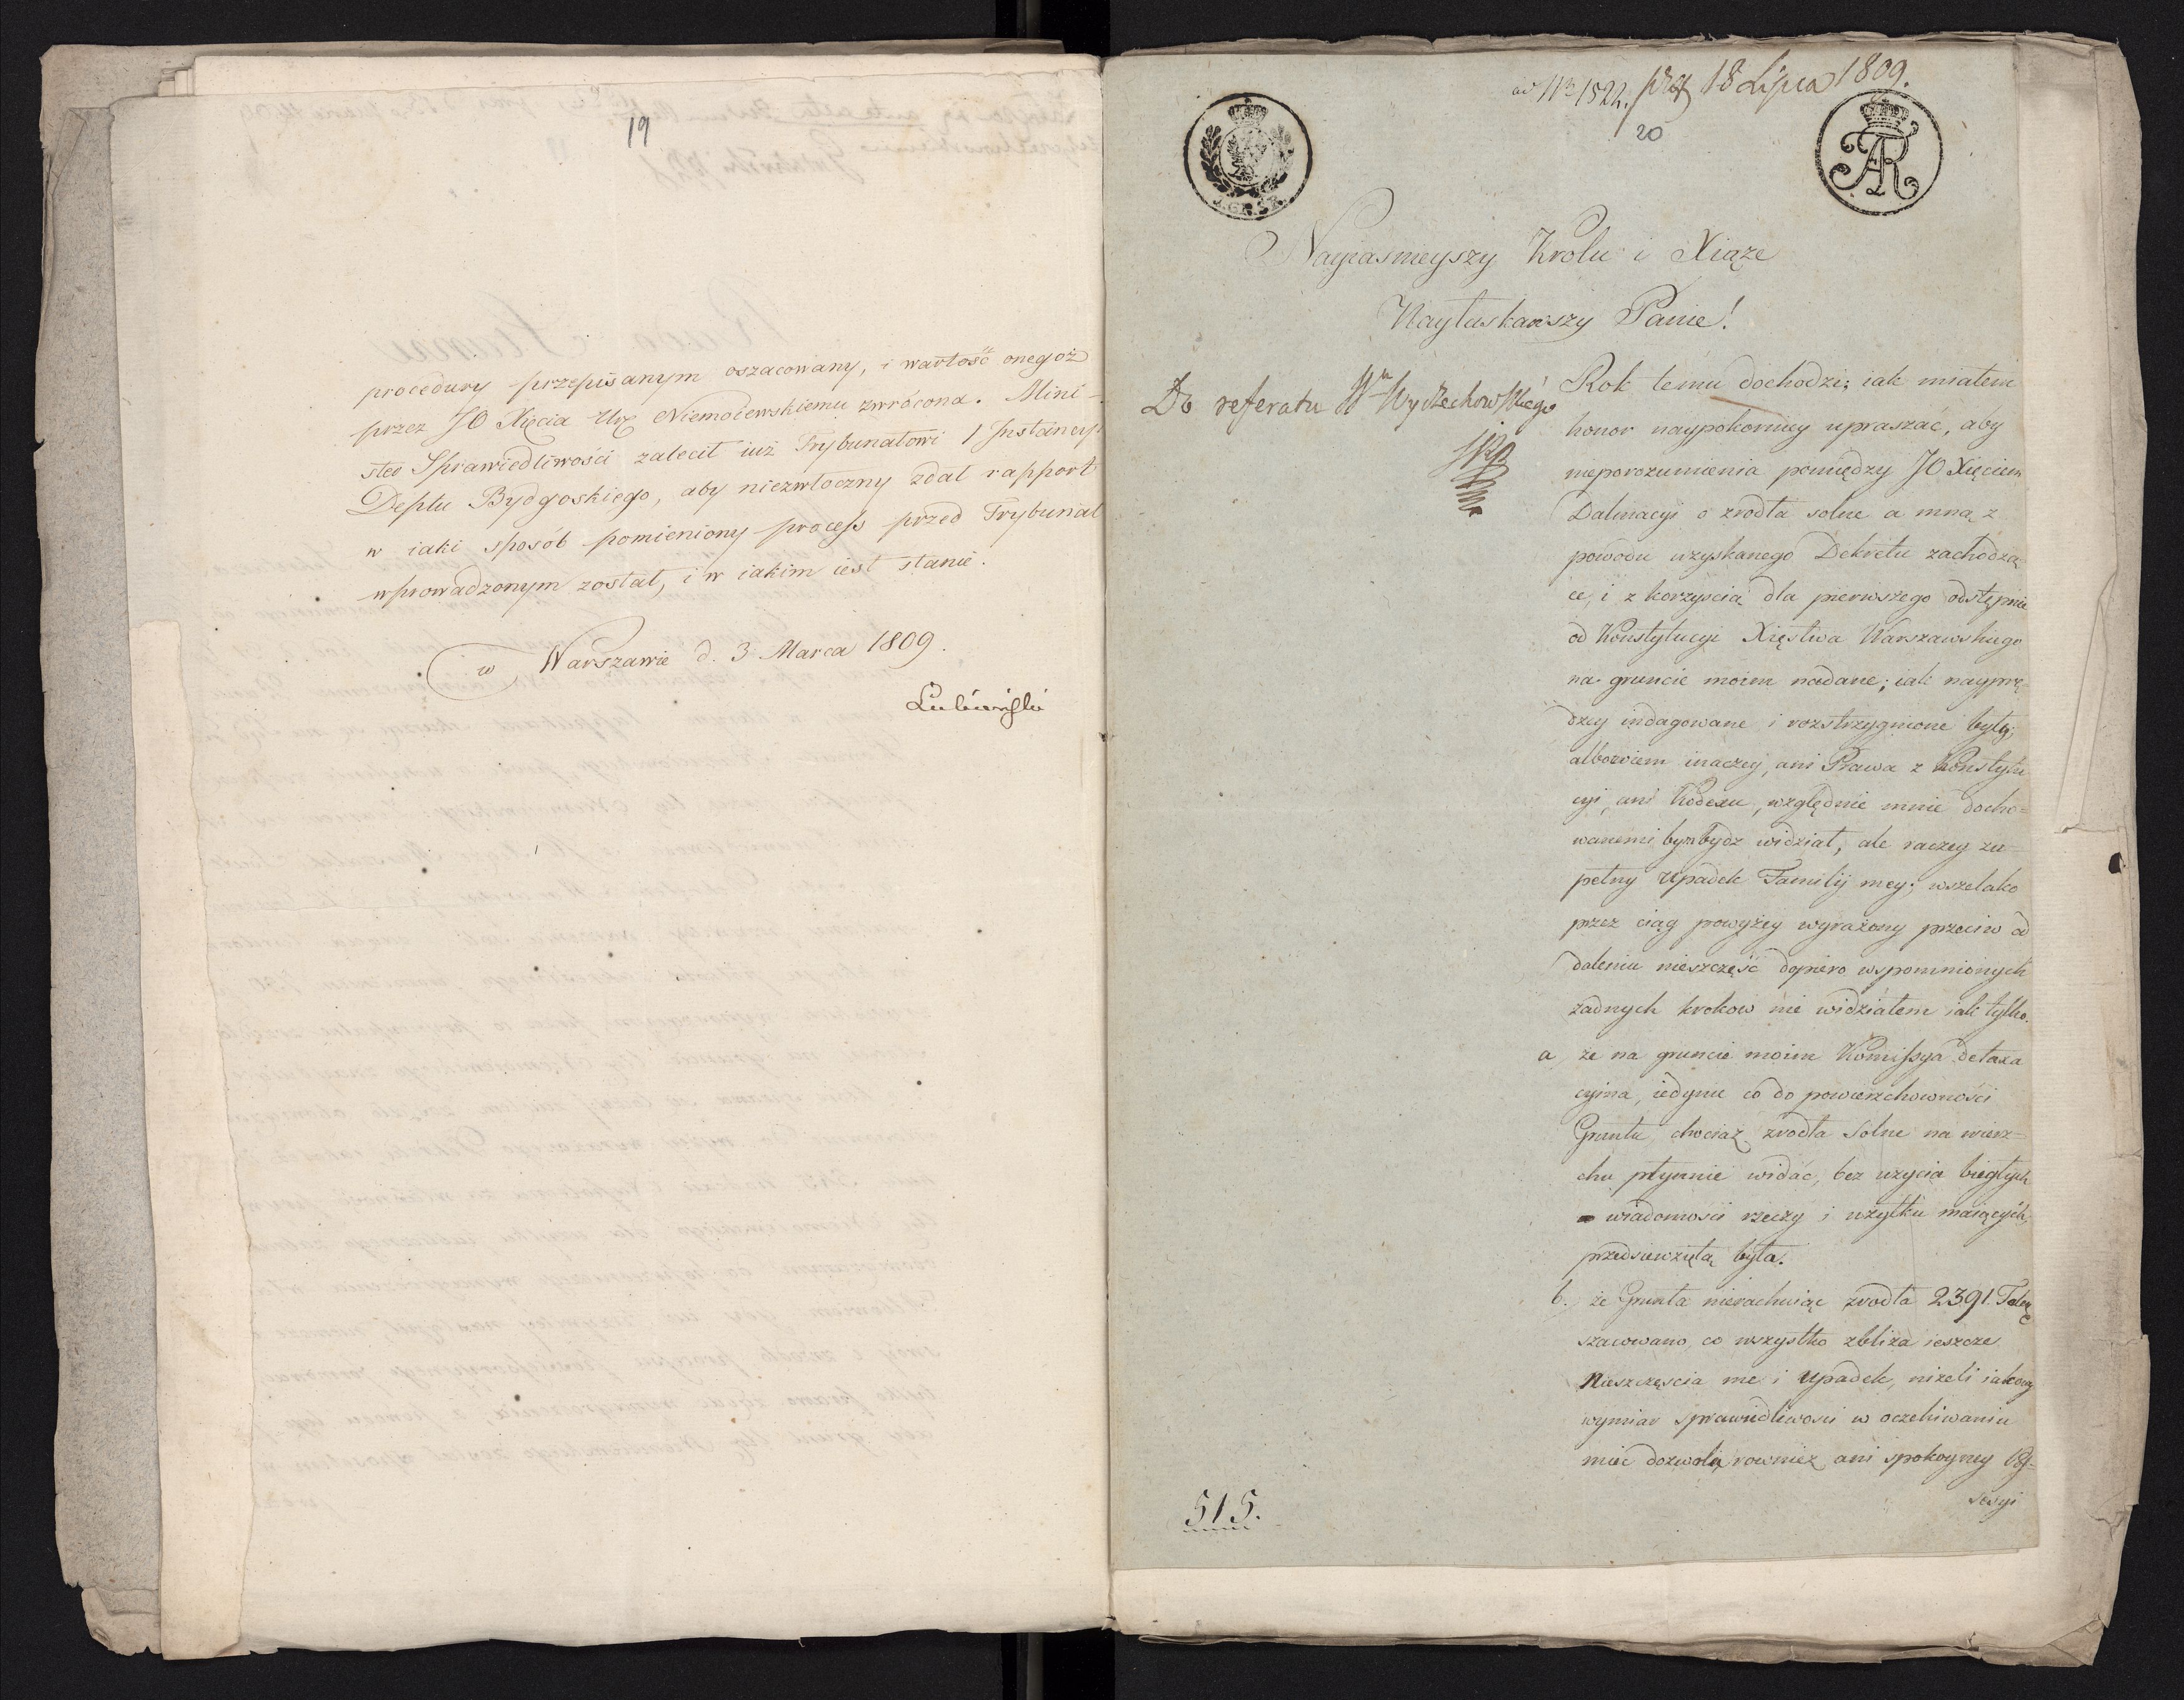 19
procedury przepisanym oszacowany, i wartość onegoż
przez JO Xięcia Ur. Niemoiewskiemu zwrócona. Mini-
ster Sprawiedliwości zalecił iuż Trybunałowi I Instancyi
Deptu Bydgoskiego, aby niezwłoczny zdał rapport
w iaki sposób pomieniony process przed Trybunał
wprowadzonym został, i w iakim iest stanie.
w Warszawie d. 3 Marca 1809.
Lubieński
ad Nro 1522. 18 Lipca 1809.
20
Nayiasnieyszy Krolu i Xiąże
Nayłaskawszy Panie!
Do referatu Wgo Wyczechowskiego
Rok temu dochodzi; iak miałem
honor naypokorniey upraszać, aby
nieporozumienia pomiędzy JO Xięciem
Dalmacyi o zrodła solne a mną z
powodu uzyskanego Dekretu zachodzą
ce, i z korzyscią dla pierwszego odstępnie
od Konstytucyi Xięstwa Warszawskiego
na gruncie moim nadane; iak nayprę-
dzey indagowane i rozstrzygnione były;
albowiem inaczey, ani Prawa z Konstytu
cyi, ani Kodexu, względnie mnie docho=
wanemi bym bydz widział, ale raczey zu=
pełny Upadek Familij mey; wszelako
przez ciąg powyżey wyrażony przeciw od
daleniu nieszczęść dopiero wspomnionych
zadnych krokow nie widziałem iak tylko.
a, że na gruncie moim Komissya detaxa
cyjna, iedynie co do powierzchowności
Gruntu chociaż zrodła Solne na wierz=
chu płynnie widać, bez uzycia biegłych
wiadomości rzeczy i użytku maiących,
przedsiewziętą była.
b., że Grunta nierachuiąc zrodła 2391. Talary
szacowano, co wszystko zbliża ieszcze
Nieszczęscia me i Upadek, niżeli iakowy
wymiar sprawiedliwosci w oczekiwaniu
miec dozwala, rownież ani spokoyney Pos-
sesyi
515.